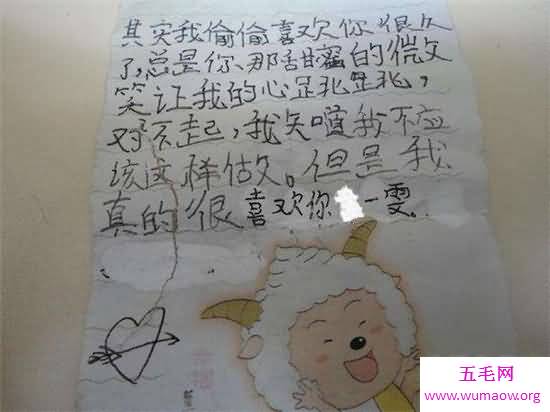 其实我偷偷喜欢你很久
了,总是你、那甜蜜的微
笑让我的心跳跳，
对不起，我知道我不应
该这样做。但是我
真的很喜欢你一雯。
五毛网
www.wumaow.org